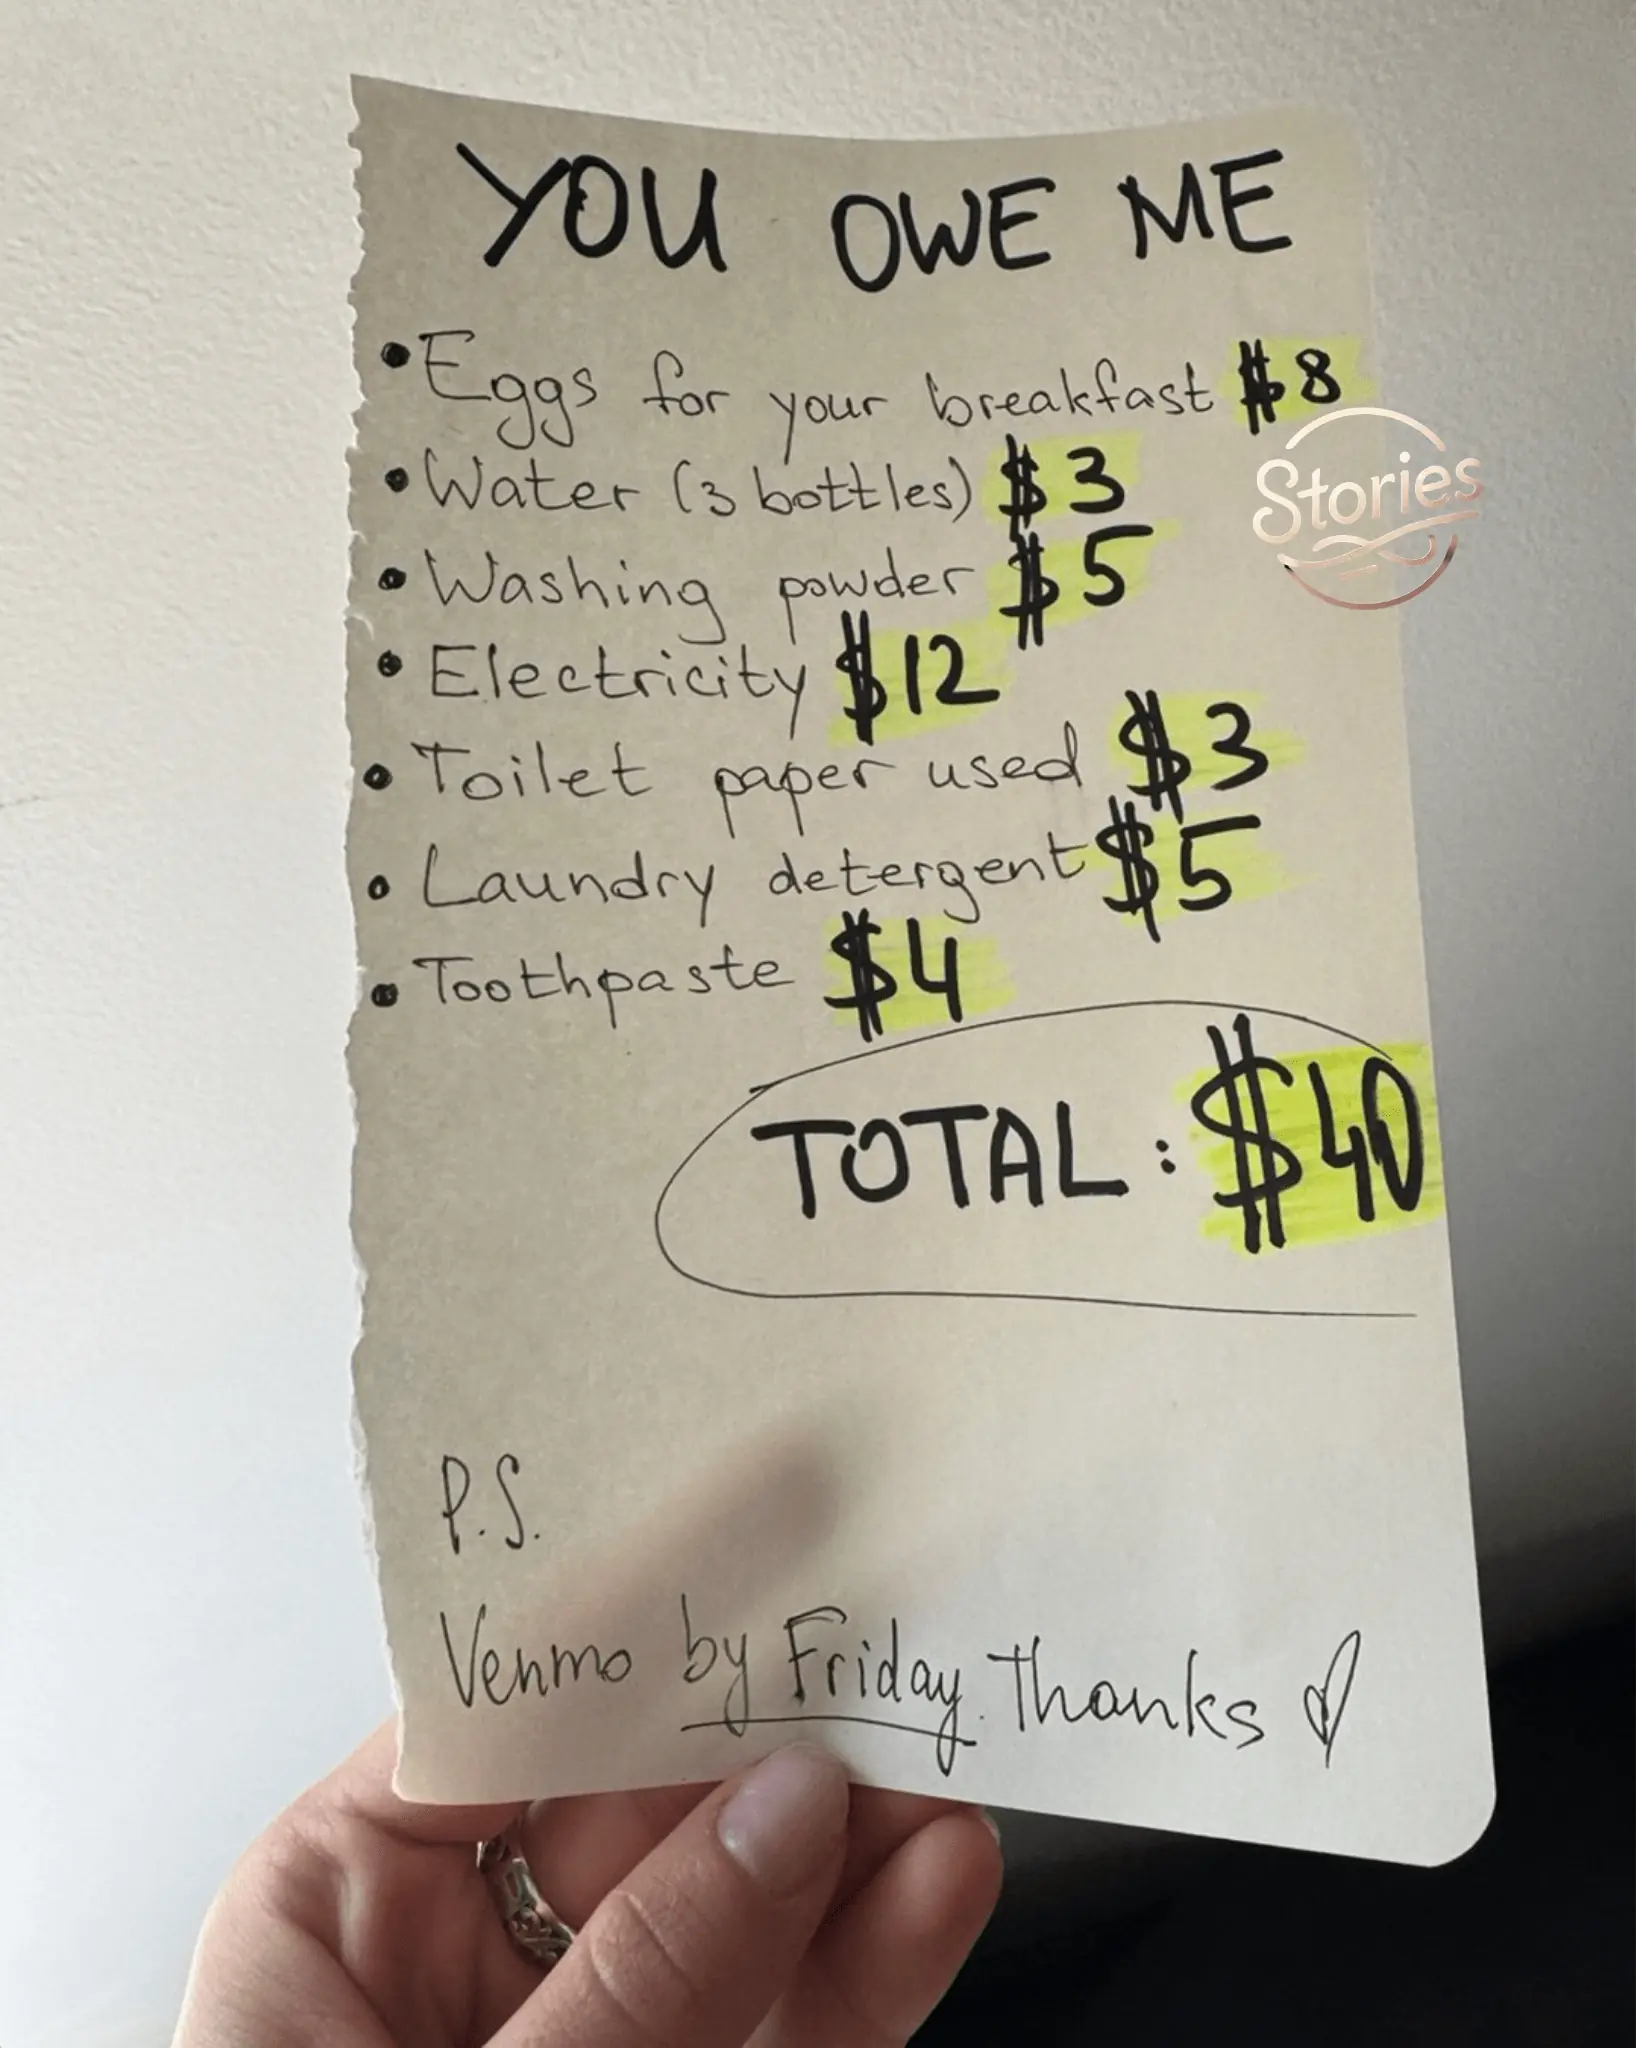 YOU OWE ME
• Eggs for your breakfast $8
• Water (3 bottles) $3
Stories
• Washing powder $5
• Electricity $12
• Toilet paper used $3
• Laundry detergent $5
• Toothpaste $4
TOTAL: $40
P.S.
Venmo by Friday. Thanks